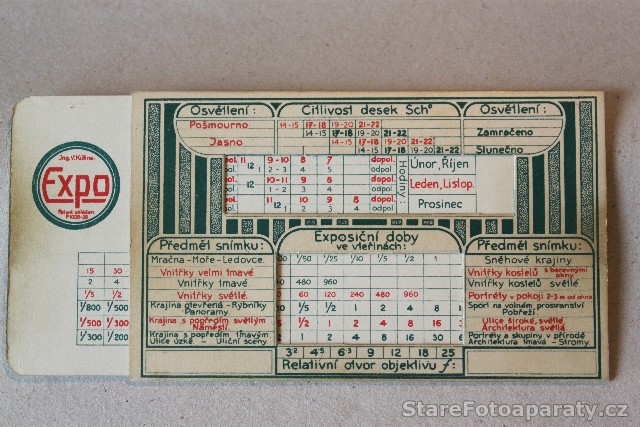 Ing. V. Kůllna.
Expo
Patent ohlášen
15 30
2 4
1/5 1/2
1/800 1/500
1/500 1/300
1/300 1/200
Osvětlení: Citlivost desek Sch° Osvětlení:
Pošmourno 14-15 17-18 19-20 21-22
14-15 17-18 19-20 21-22 Zamračeno
Jasno 14-15 17-18 19-20 21-22
14-15 17-18 19-20 21-22 Slunečno
pol. 11 12 9-10 8 7 dopol.
1 1 2-3 4 5 odpol.
10-11 9 8 dopol.
12 1 2 3 4 odpol.
11 10 9 8 dopol.
12 1 2 3 4 odpol.
Hodiny:
Únor, Říjen
Leden, Listop.
Prosinec
Předmět snímku:
Mračna-Moře-Ledovce.
Vnitřky velmi tmavé
Vnitřky tmavé
Vnitřky světlé
Krajina otevřená-Rybníky
Panoramy.
Krajina s popředím světlým
Náměstí.
Krajina s popředím tmavým
Ulice úzké. - Uliční scény
Exposiční doby
ve vteřinách:
1/50 1/25 1/10 1/5 1/2 1
480 960
60 120 240 480 960
1/5 1/2 1 2 4 8
1/2 1 2 4 8 16
1 2 4 8 16 30
3² 4⁵ 6³ 9 12 18 25
Relativní otvor objektivu f:
Předmět snímku:
Sněhové krajiny.
Vnitřky kostelů s barevnými
okny
Vnitřky kostelů světlé
Portréty v pokoji 2-3 m od okna
Sport na volném prostranství
Pobřeží
Ulice široké, světlé
Architektura světlá
Portréty a skupiny v přírodě
Architektura tmavá - Stromy.
StareFotoaparaty.cz